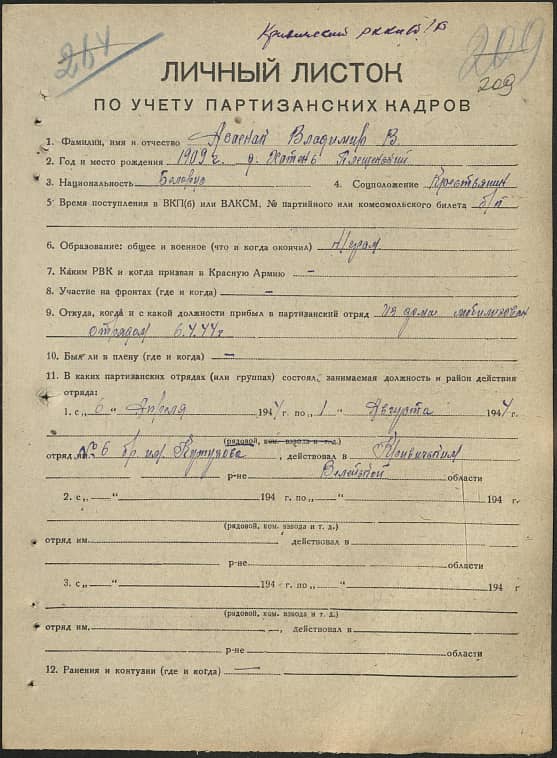 264
209
209
ЛИЧНЫЙ ЛИСТОК
ПО УЧЕТУ ПАРТИЗАНСКИХ КАДРОВ
1. Фамилия, имя и отчество Владимир В.
2. Год и место рождения 1909 г. д.
3. Национальность 4. Соцположение Крестьянин
5. Время поступления в ВКП(б) или ВЛКСМ, № партийного или комсомольского билета б/п
6. Образование: общее и военное (что и когда окончил)
7. Каким РВК и когда призван в Красную Армию —
8. Участие на фронтах (где и когда) —
9. Откуда, когда и с какой должности прибыл в партизанский отряд из дома мобилизован
отрядом 6.4.44г
10. Был ли в плену (где и когда) —
11. В каких партизанских отрядах (или группах) состоял, занимаемая должность и район действия
отряда:
1. с „6“ Апреля 1944 г. по „1“ Августа 1944 г.
(рядовой, ком. взвода и т. д.)
отряд №6 бр им. Кутузова, действовал в Кривичским
р-не Вилейской области
2. с „ “ 194 г. по „ “ 194 г.
(рядовой, ком. взвода и т. д.)
отряд им. действовал в
р-не области
3. с „ “ 194 г. по „ “ 194 г
(рядовой, ком. взвода и т. д.)
отряд им. , действовал в
р-не области
12. Ранения и контузии (где и когда) —